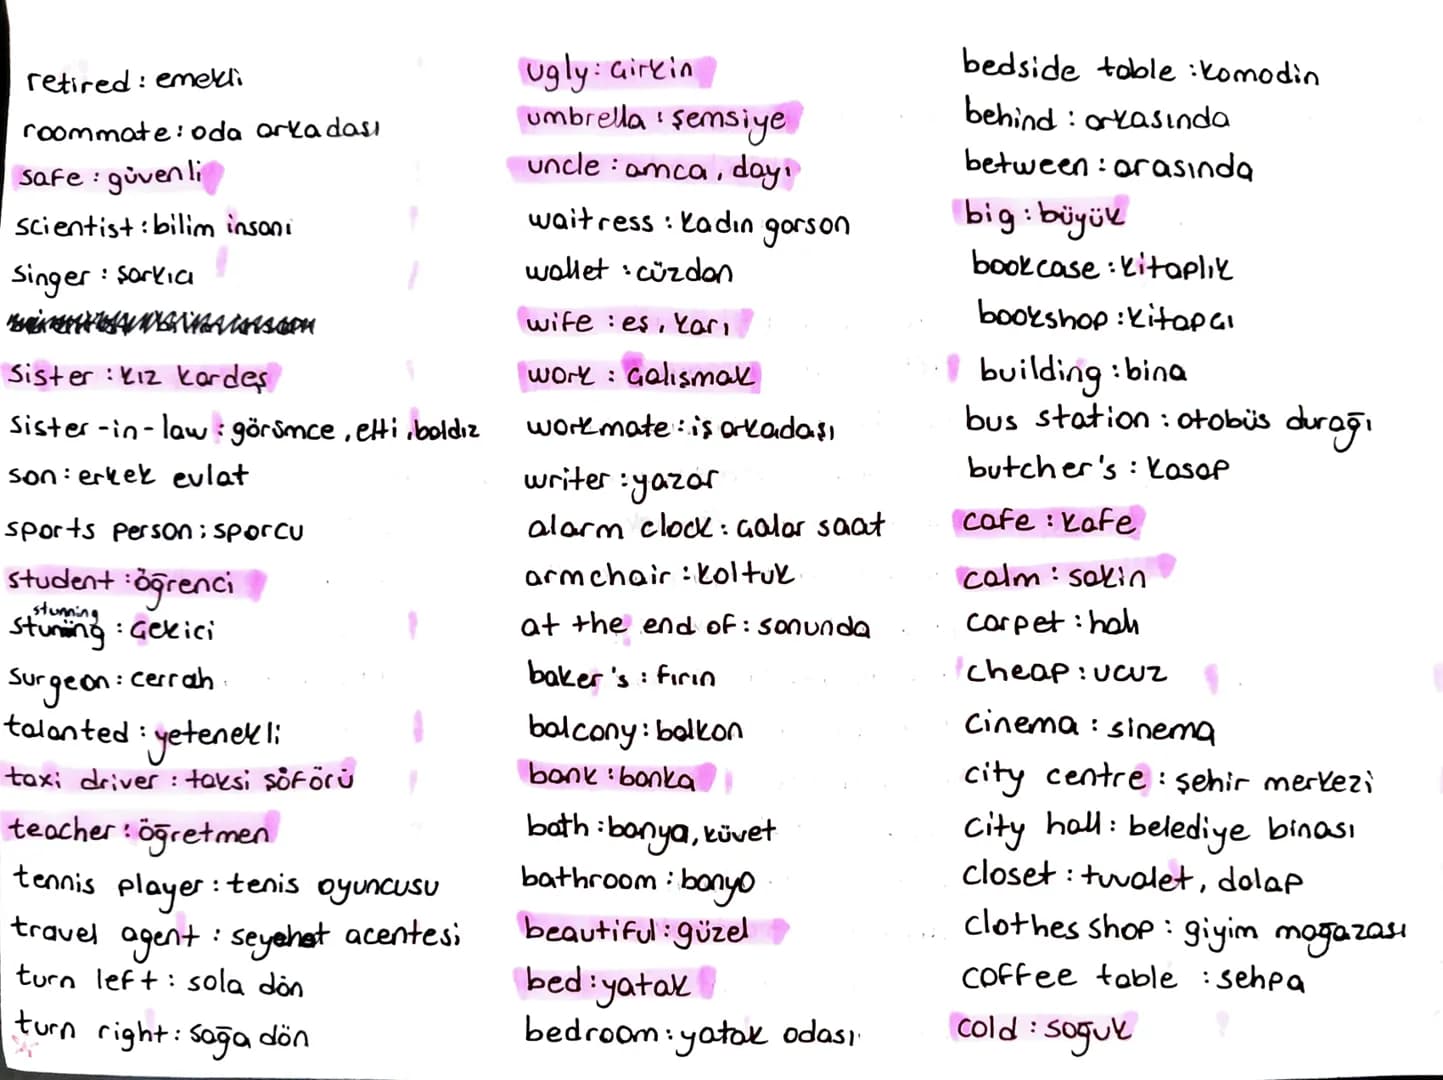 retired : emekli
roommate : oda arkadası
safe : güvenli
scientist : bilim insanı
singer : sarkıcı
sister : kız kardeş
sister-in-law : görümce, elti, baldız
son : erkek evlat
sports person : sporcu
student : öğrenci
stunning
stuning : çekici
surgeon : cerrah
talanted : yetenekli
taxi driver : taksi şöförü
teacher : öğretmen
tennis player : tenis oyuncusu
travel agent : seyehat acentesi
turn left : sola dön
turn right : sağa dön
ugly : çirkin
umbrella : şemsiye
uncle : amca, dayı
waitress : kadın garson
wallet : cüzdan
wife : eş, karı
work : çalışmak
workmate : iş arkadaşı
writer : yazar
alarm clock : çalar saat
armchair : koltuk
at the end of : sonunda
baker's : fırın
balcony : balkon
bank : banka
bath : banya, küvet
bathroom : banyo
beautiful : güzel
bed : yatak
bedroom : yatak odası
bedside table : komodin
behind : arkasında
between : arasında
big : büyük
bookcase : kitaplık
bookshop : kitapçı
building : bina
bus station : otobüs durağı
butcher's : kasap
cafe : kafe
calm : sakin
carpet : halı
cheap : ucuz
cinema : sinema
city centre : şehir merkezi
city hall : belediye binası
closet : tuvalet, dolap
clothes shop : giyim mağazası
coffee table : sehpa
cold : soğuk